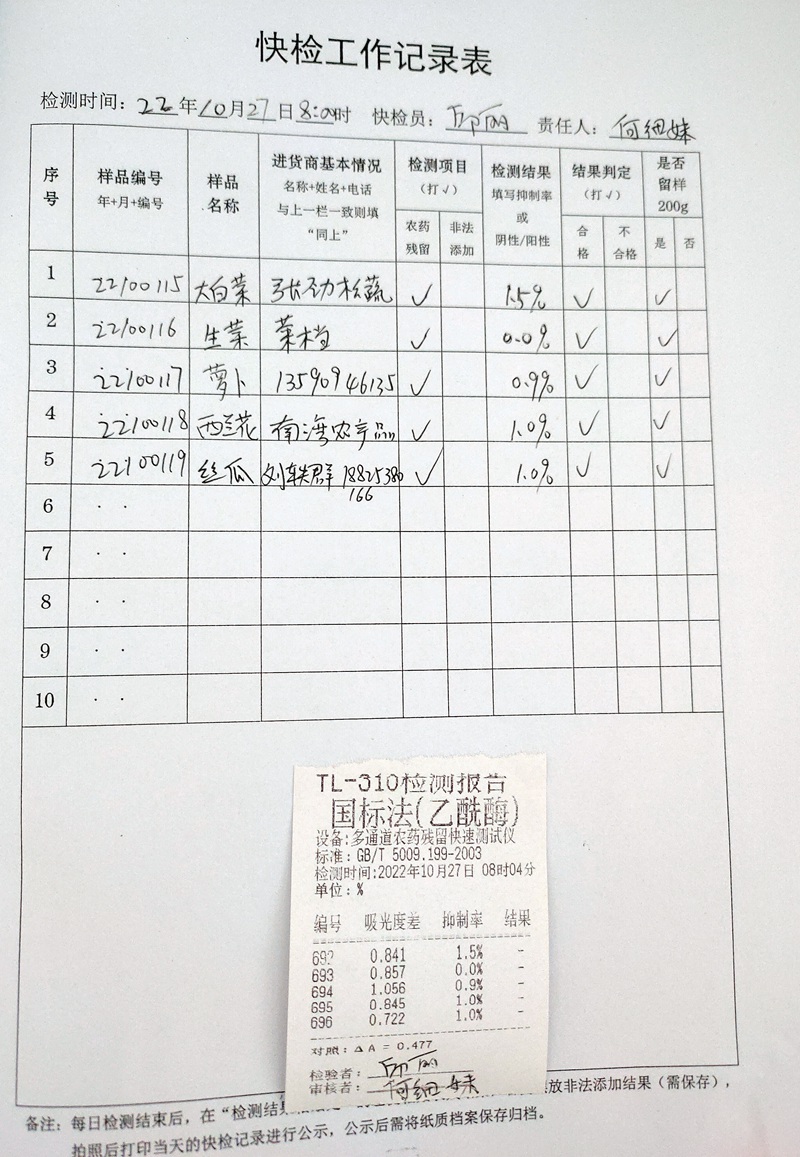 快检工作记录表
检测时间：22年10月27日8:00时 快检员：邱丽 责任人：何细妹
序号 样品编号 年+月+编号 样品名称 进货商基本情况 名称+姓名+电话 与上一栏一致则填 “同上” 检测项目 (打√) 检测结果 填写抑制率 或 阴性/阳性 结果判定 (打√) 是否留样 200g
农药残留 非法添加 合格 不合格 是 否
1 22100115 大白菜 张劲松蔬 √ 1.5% √ √
2 22100116 生菜 菜档 √ 0.0% √ √
3 22100117 萝卜 13590946135 √ 0.9% √ √
4 22100118 西兰花 南海农产品 √ 1.0% √ √
5 22100119 丝瓜 刘 群 18825380166 √ 1.0% √ √
6 . .
7 . .
8 . .
9 . .
10 . .
TL-310检测报告
国标法(乙酰酶)
设备:多通道农药残留快速测试仪
标准：GB/T 5009.199-2003
检测时间:2022年10月27日 08时04分
单位：%
编号 吸光度差 抑制率 结果
692 0.841 1.5% -
693 0.857 0.0% -
694 1.056 0.9% -
695 0.845 1.0% -
696 0.722 1.0% -
对照：ΔA = 0.477
检验者：邱丽
审核者：何细妹
备注：每日检测结束后，在“检测结 放非法添加结果（需保存），
拍照后打印当天的快检记录进行公示，公示后需将纸质档案保存归档。